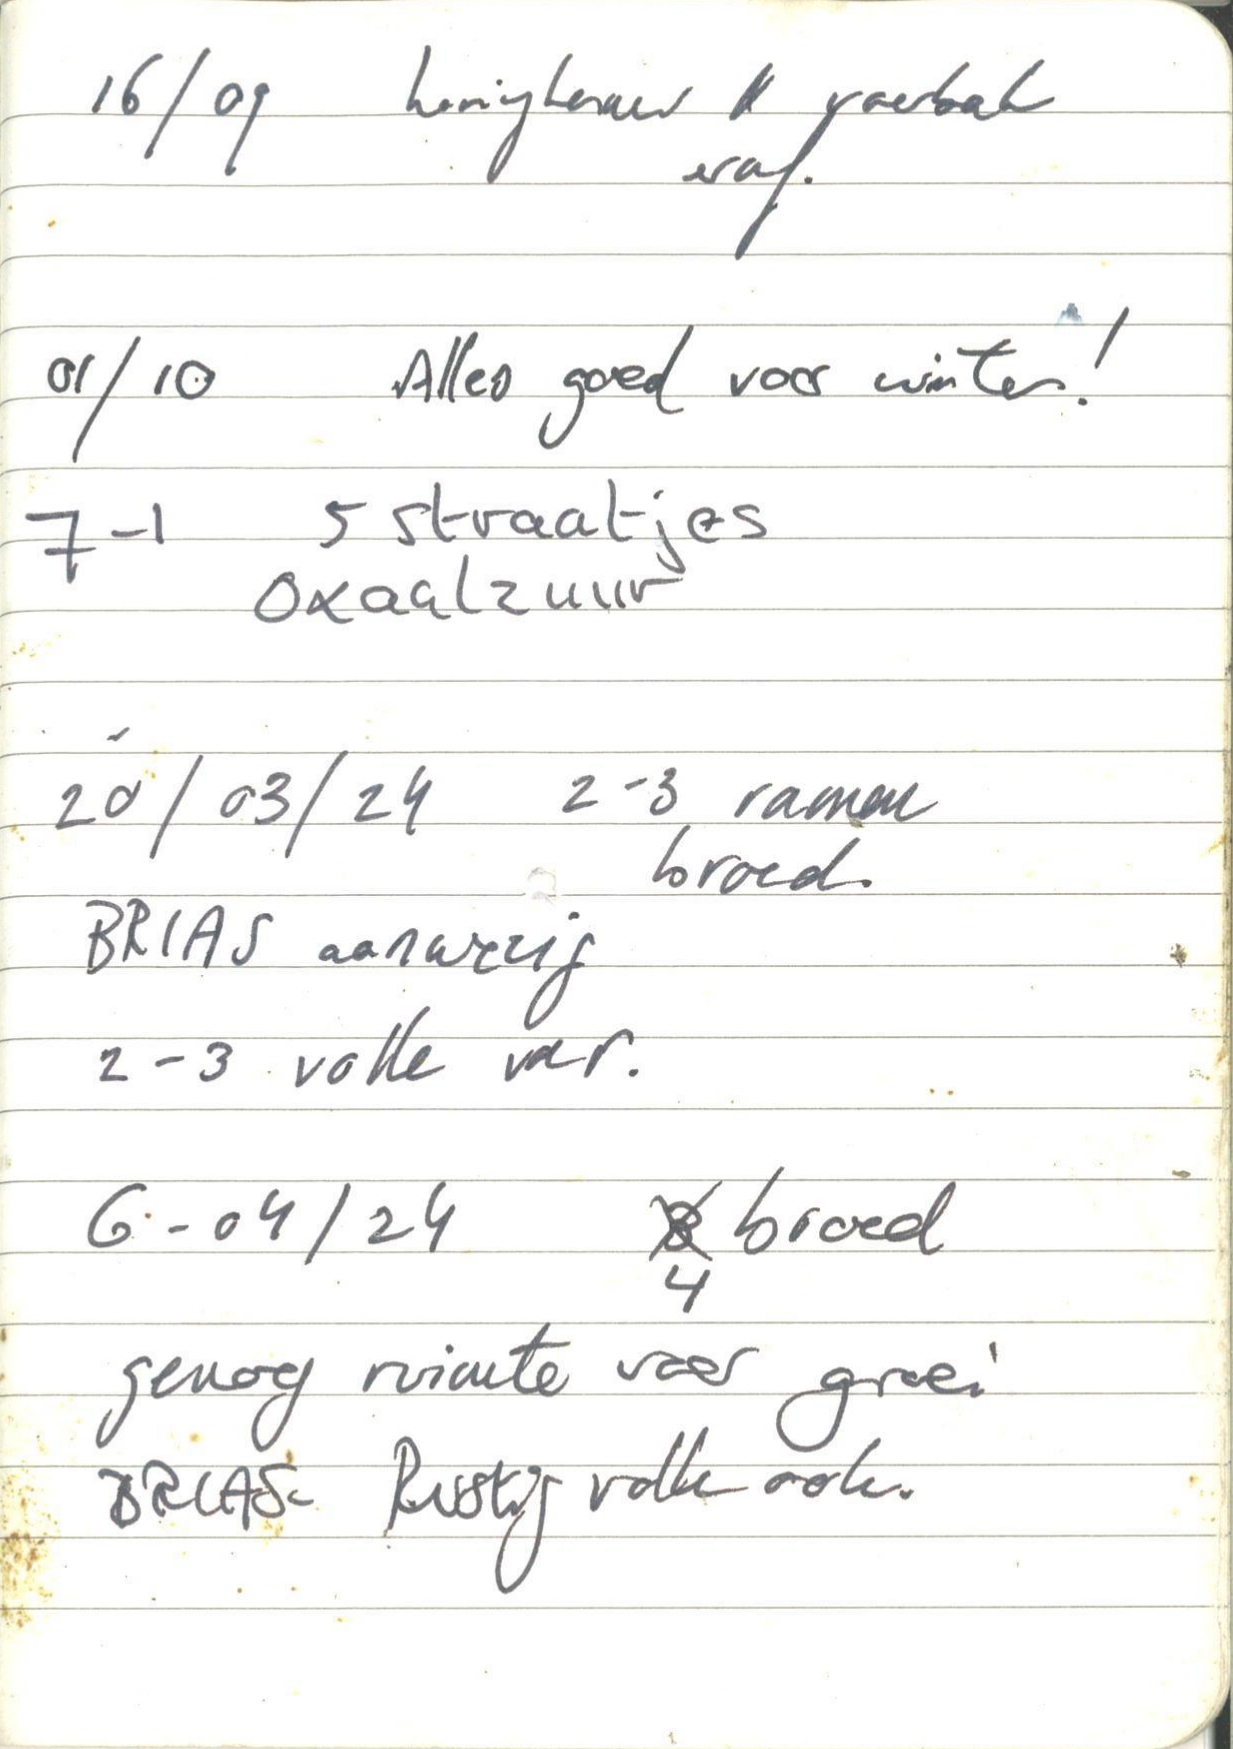 16/09 honingkamer & voerbak
eraf.
01/10 Alles goed voor winter!
7-1 5 straatjes
Oxaalzuur
20/03/24 2-3 ramen
broed.
BRIAS aanwezig
2-3 volle voer.
6-04/24 4 broed
genoeg ruimte voor groei
BRIAS Rustig volk ook.